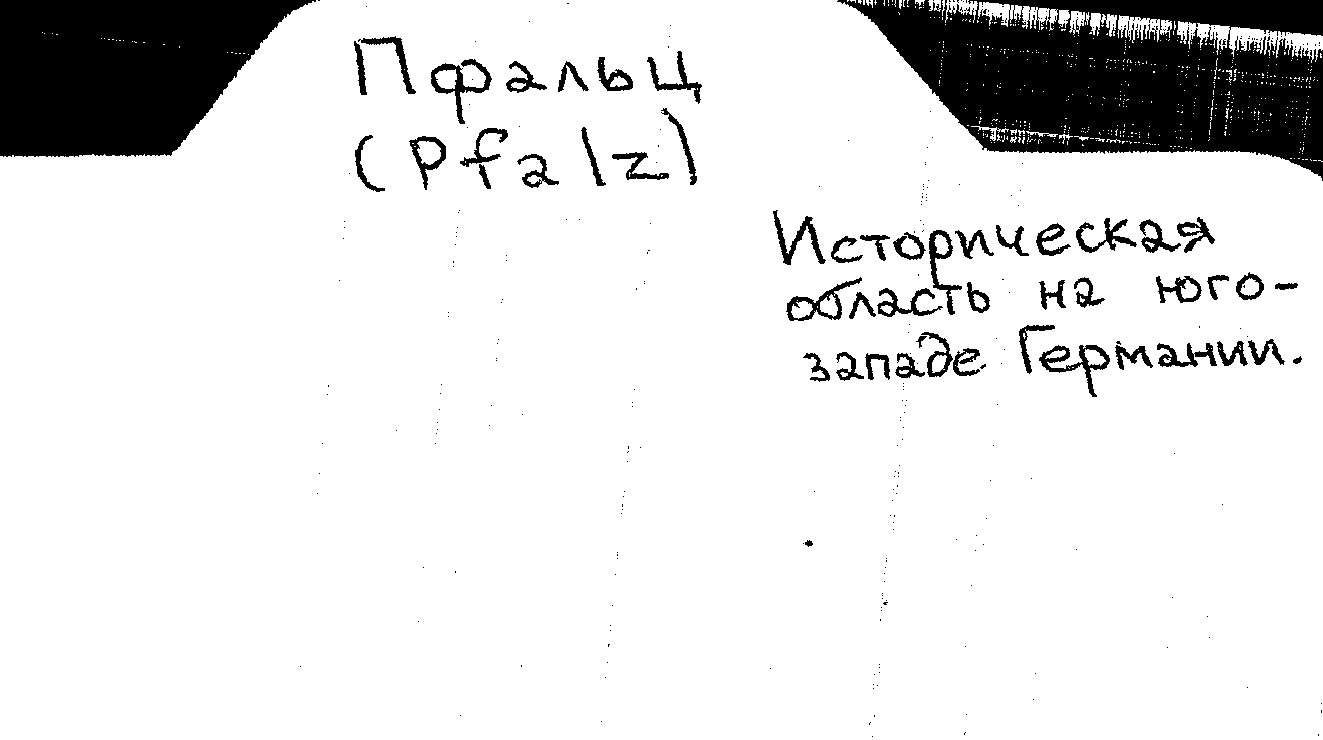 Пфальц
(Pfalz)
Историческая
область на юго-
западе Германии.